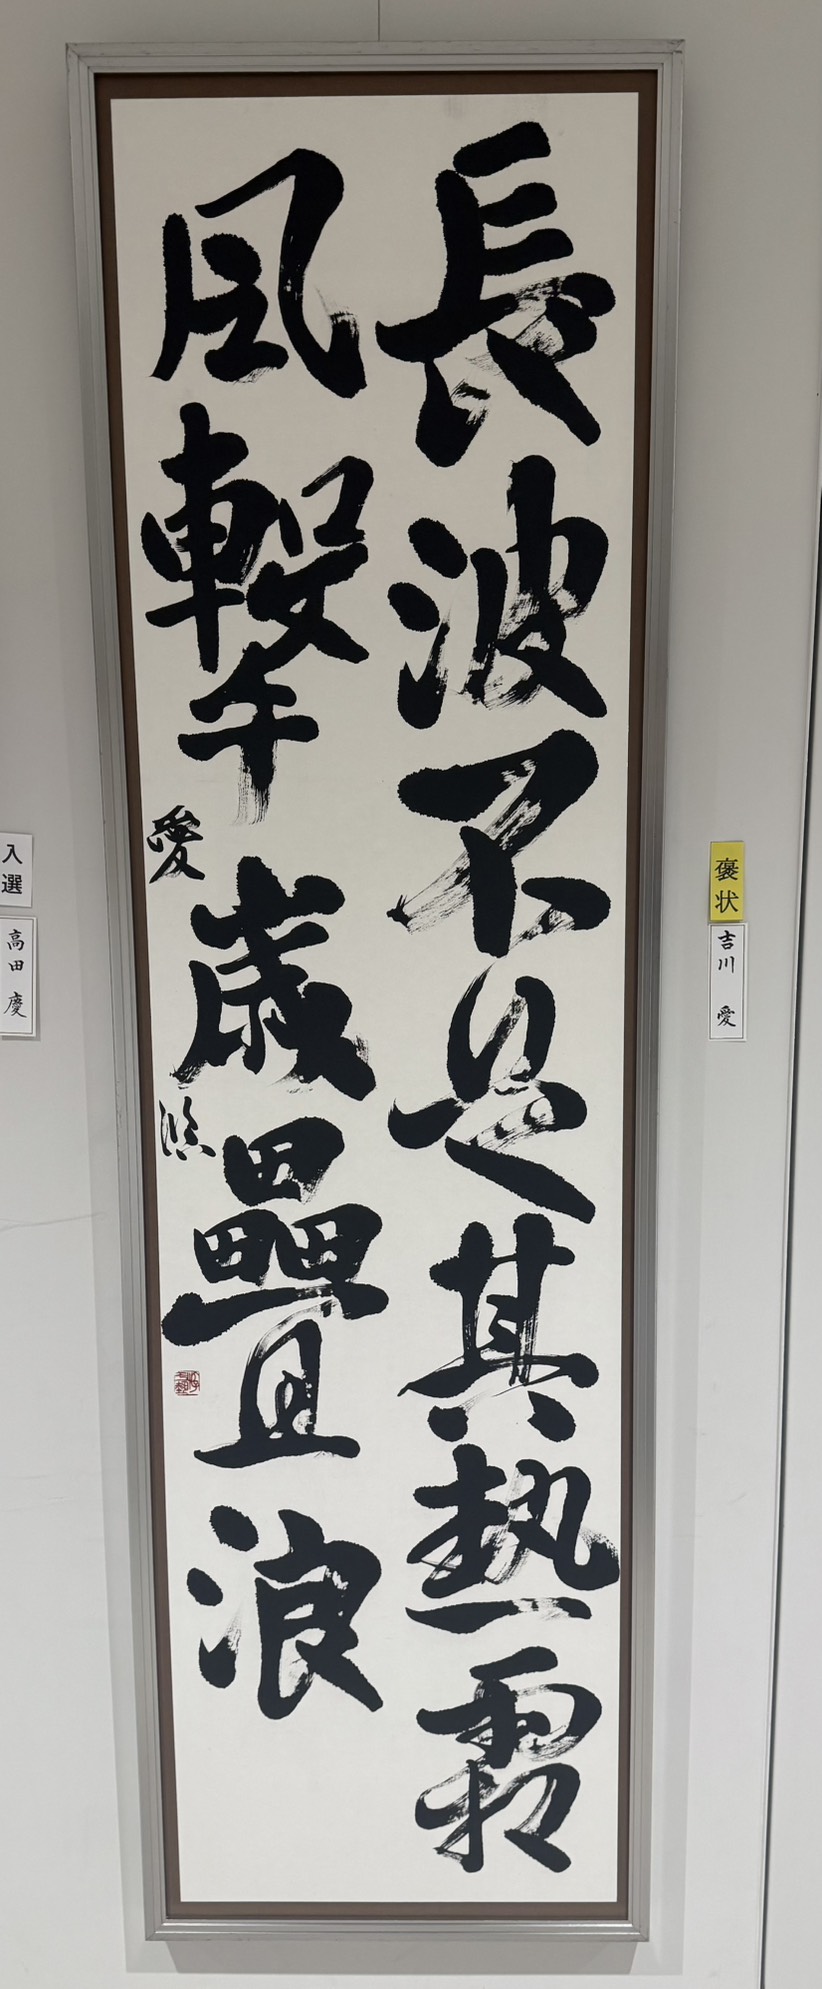 褒状
吉川 愛
長波不足其熱霜
風撃歳疊浪
愛 臨
入選
高田 慶